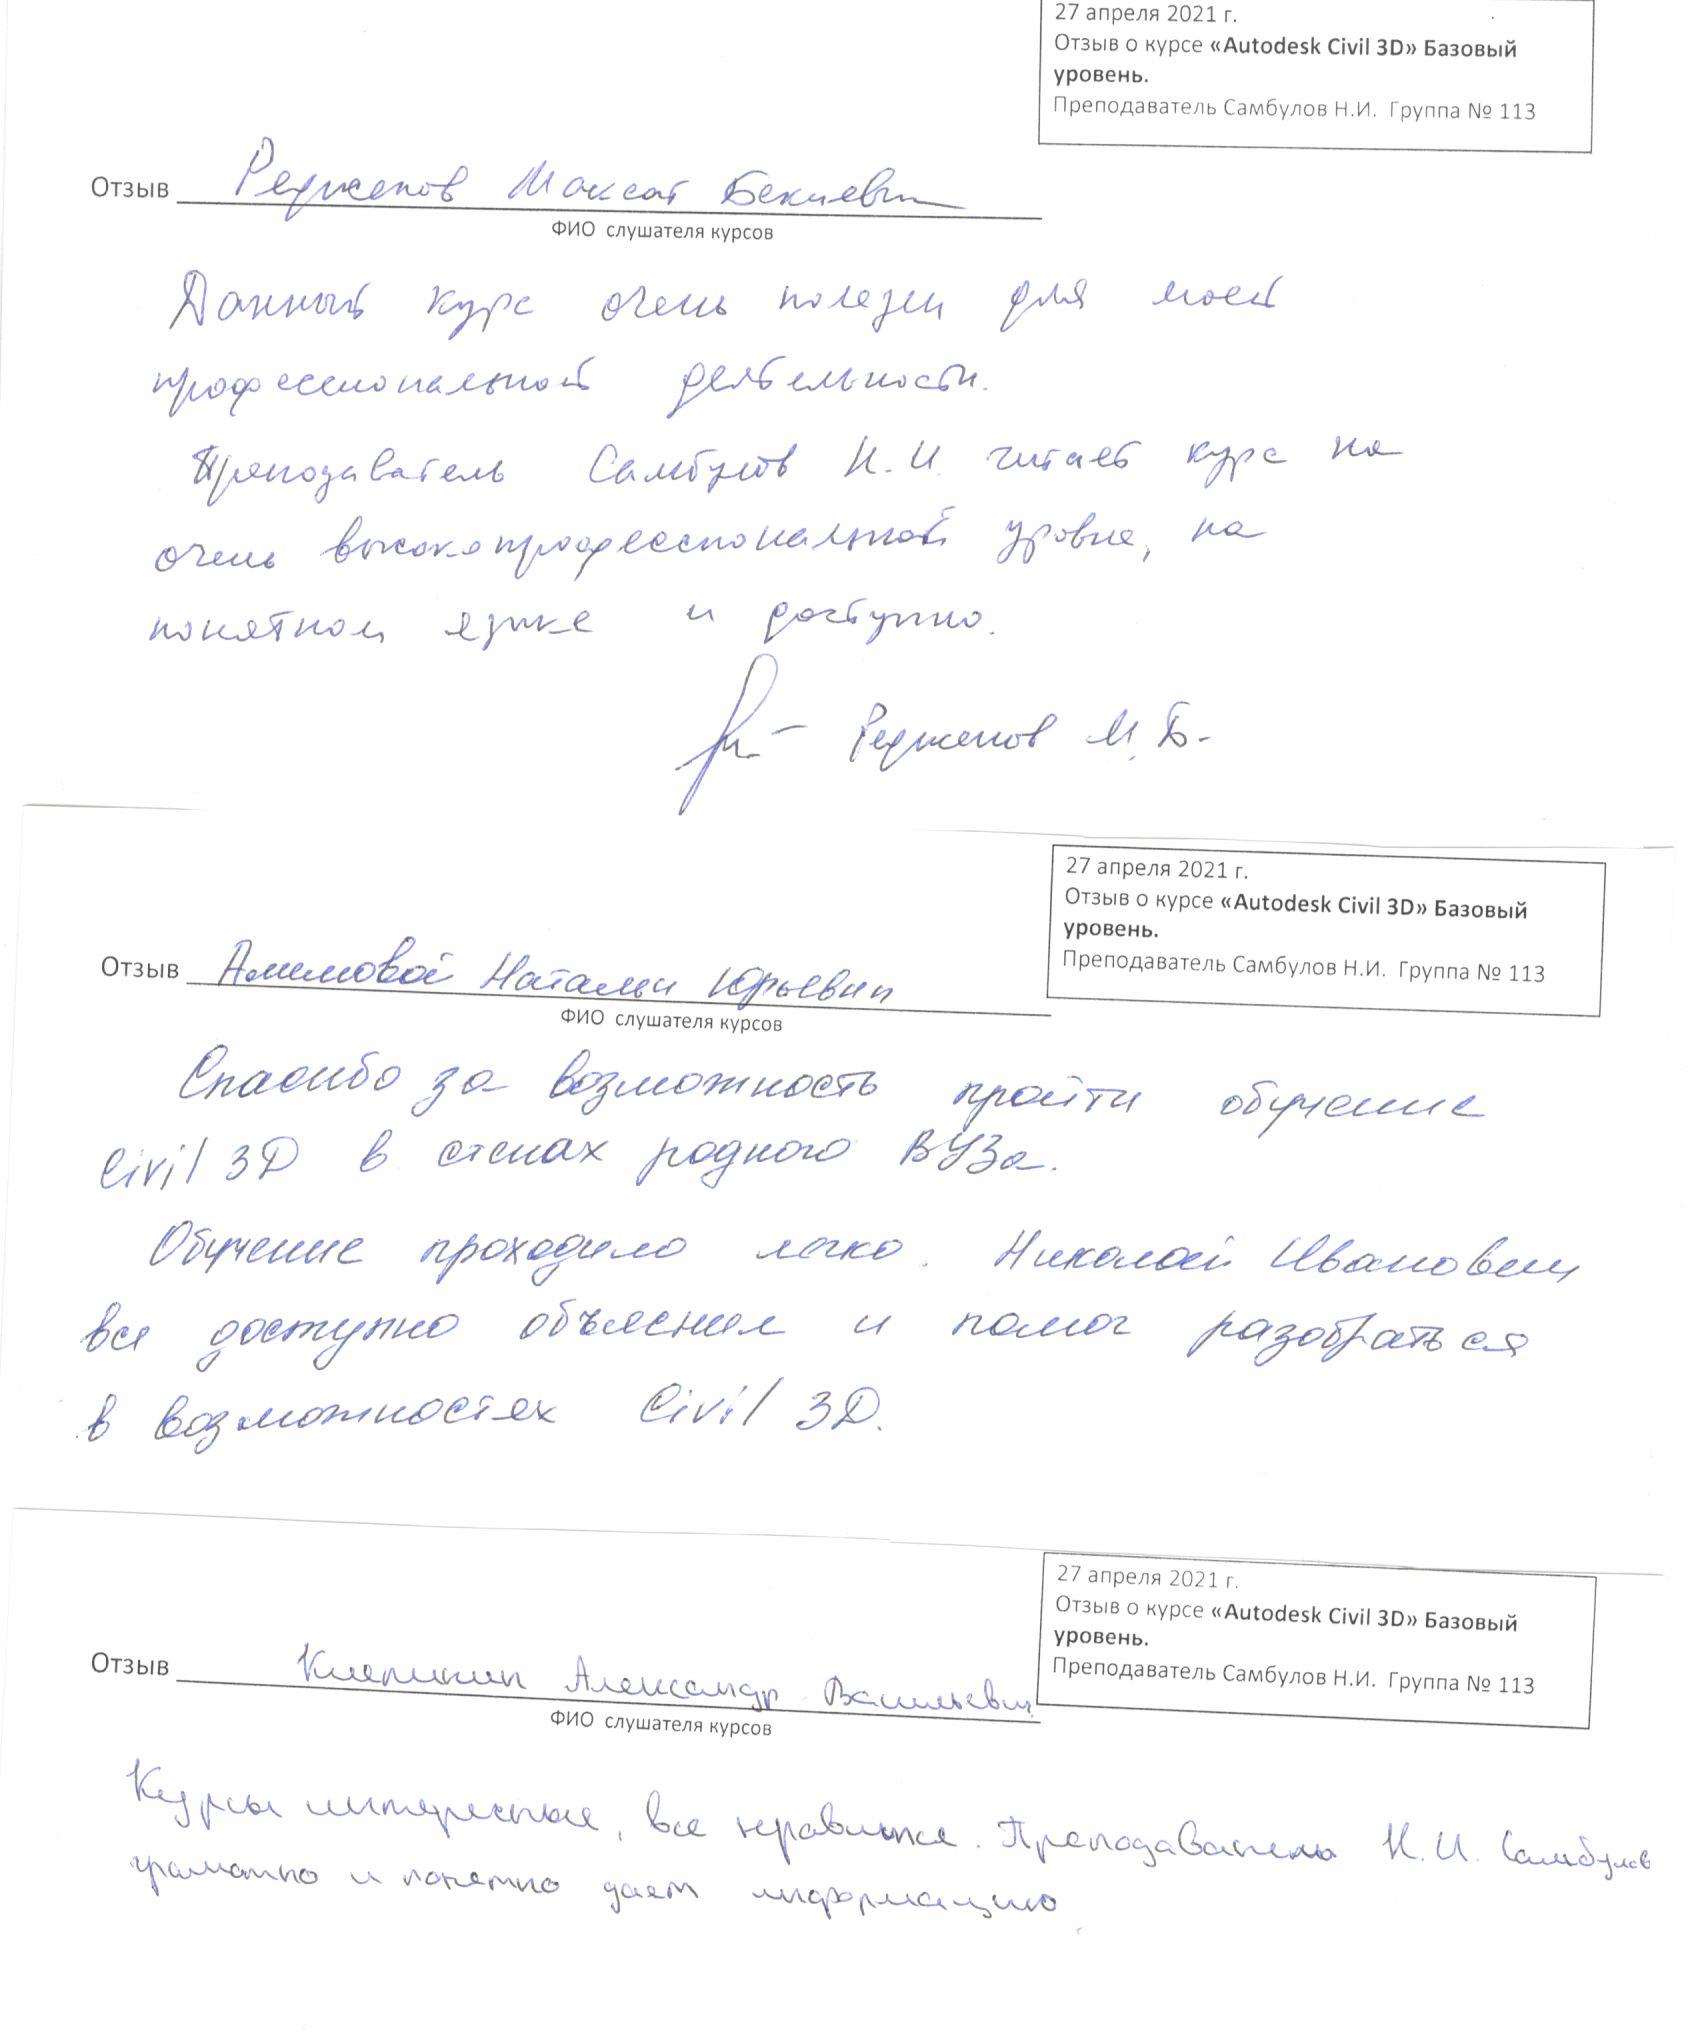 27 апреля 2021 г.
Отзыв о курсе «Autodesk Civil 3D» Базовый
уровень.
Преподаватель Самбулов Н.И. Группа № 113
Отзыв Реджепов Максат Бекиевич
ФИО слушателя курсов
Данный курс очень полезен для моей
профессиональной деятельности.
Преподаватель Самбулов Н.И. читает курс на
очень высокопрофессиональной уровне, на
понятном языке и доступно.
Реджепов М.Б.
27 апреля 2021 г.
Отзыв о курсе «Autodesk Civil 3D» Базовый
уровень.
Преподаватель Самбулов Н.И. Группа № 113
Отзыв Алимовой Натальи Юрьевны
ФИО слушателя курсов
Спасибо за возможность пройти обучение
Civil 3D в стенах родного ВУЗа.
Обучение проходило легко. Николай Иванович
все доступно объяснил и помог разобраться
в возможностях Civil 3D.
27 апреля 2021 г.
Отзыв о курсе «Autodesk Civil 3D» Базовый
уровень.
Преподаватель Самбулов Н.И. Группа № 113
Отзыв Александр Васильевич
ФИО слушателя курсов
Курсы интересные, все нравится. Преподаватель Н.И. Самбулов
грамотно и понятно дает информацию